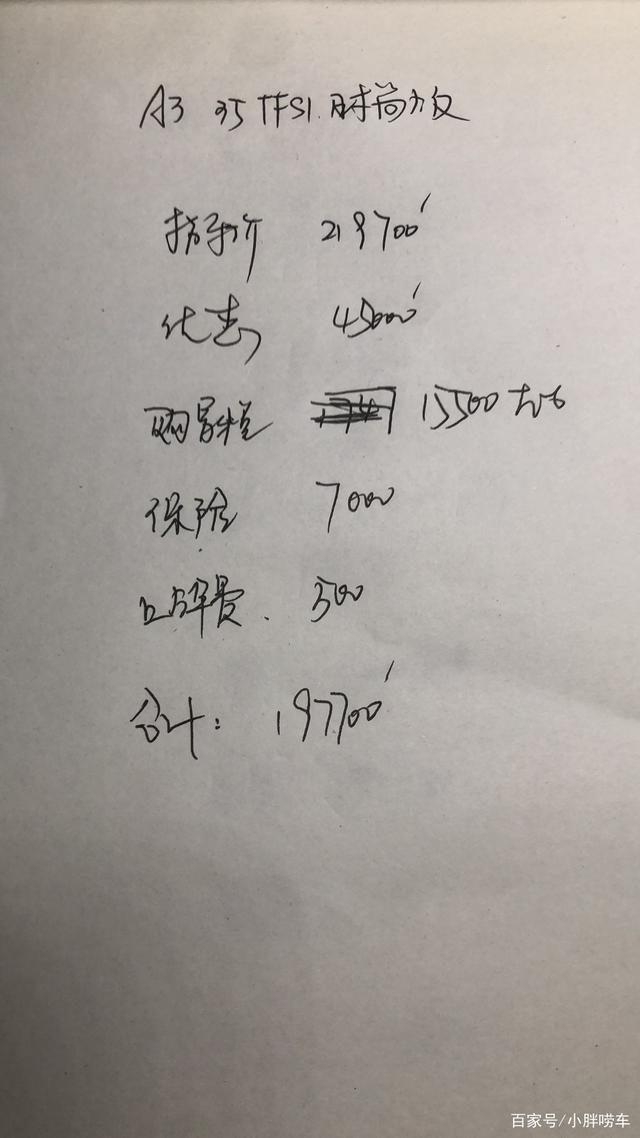 A3 35 TFSI 时尚版
指导价 219700
优惠 45000
购置税 15500左右
保险 7000
上牌费. 500
合计: 197700
百家号/小胖唠车